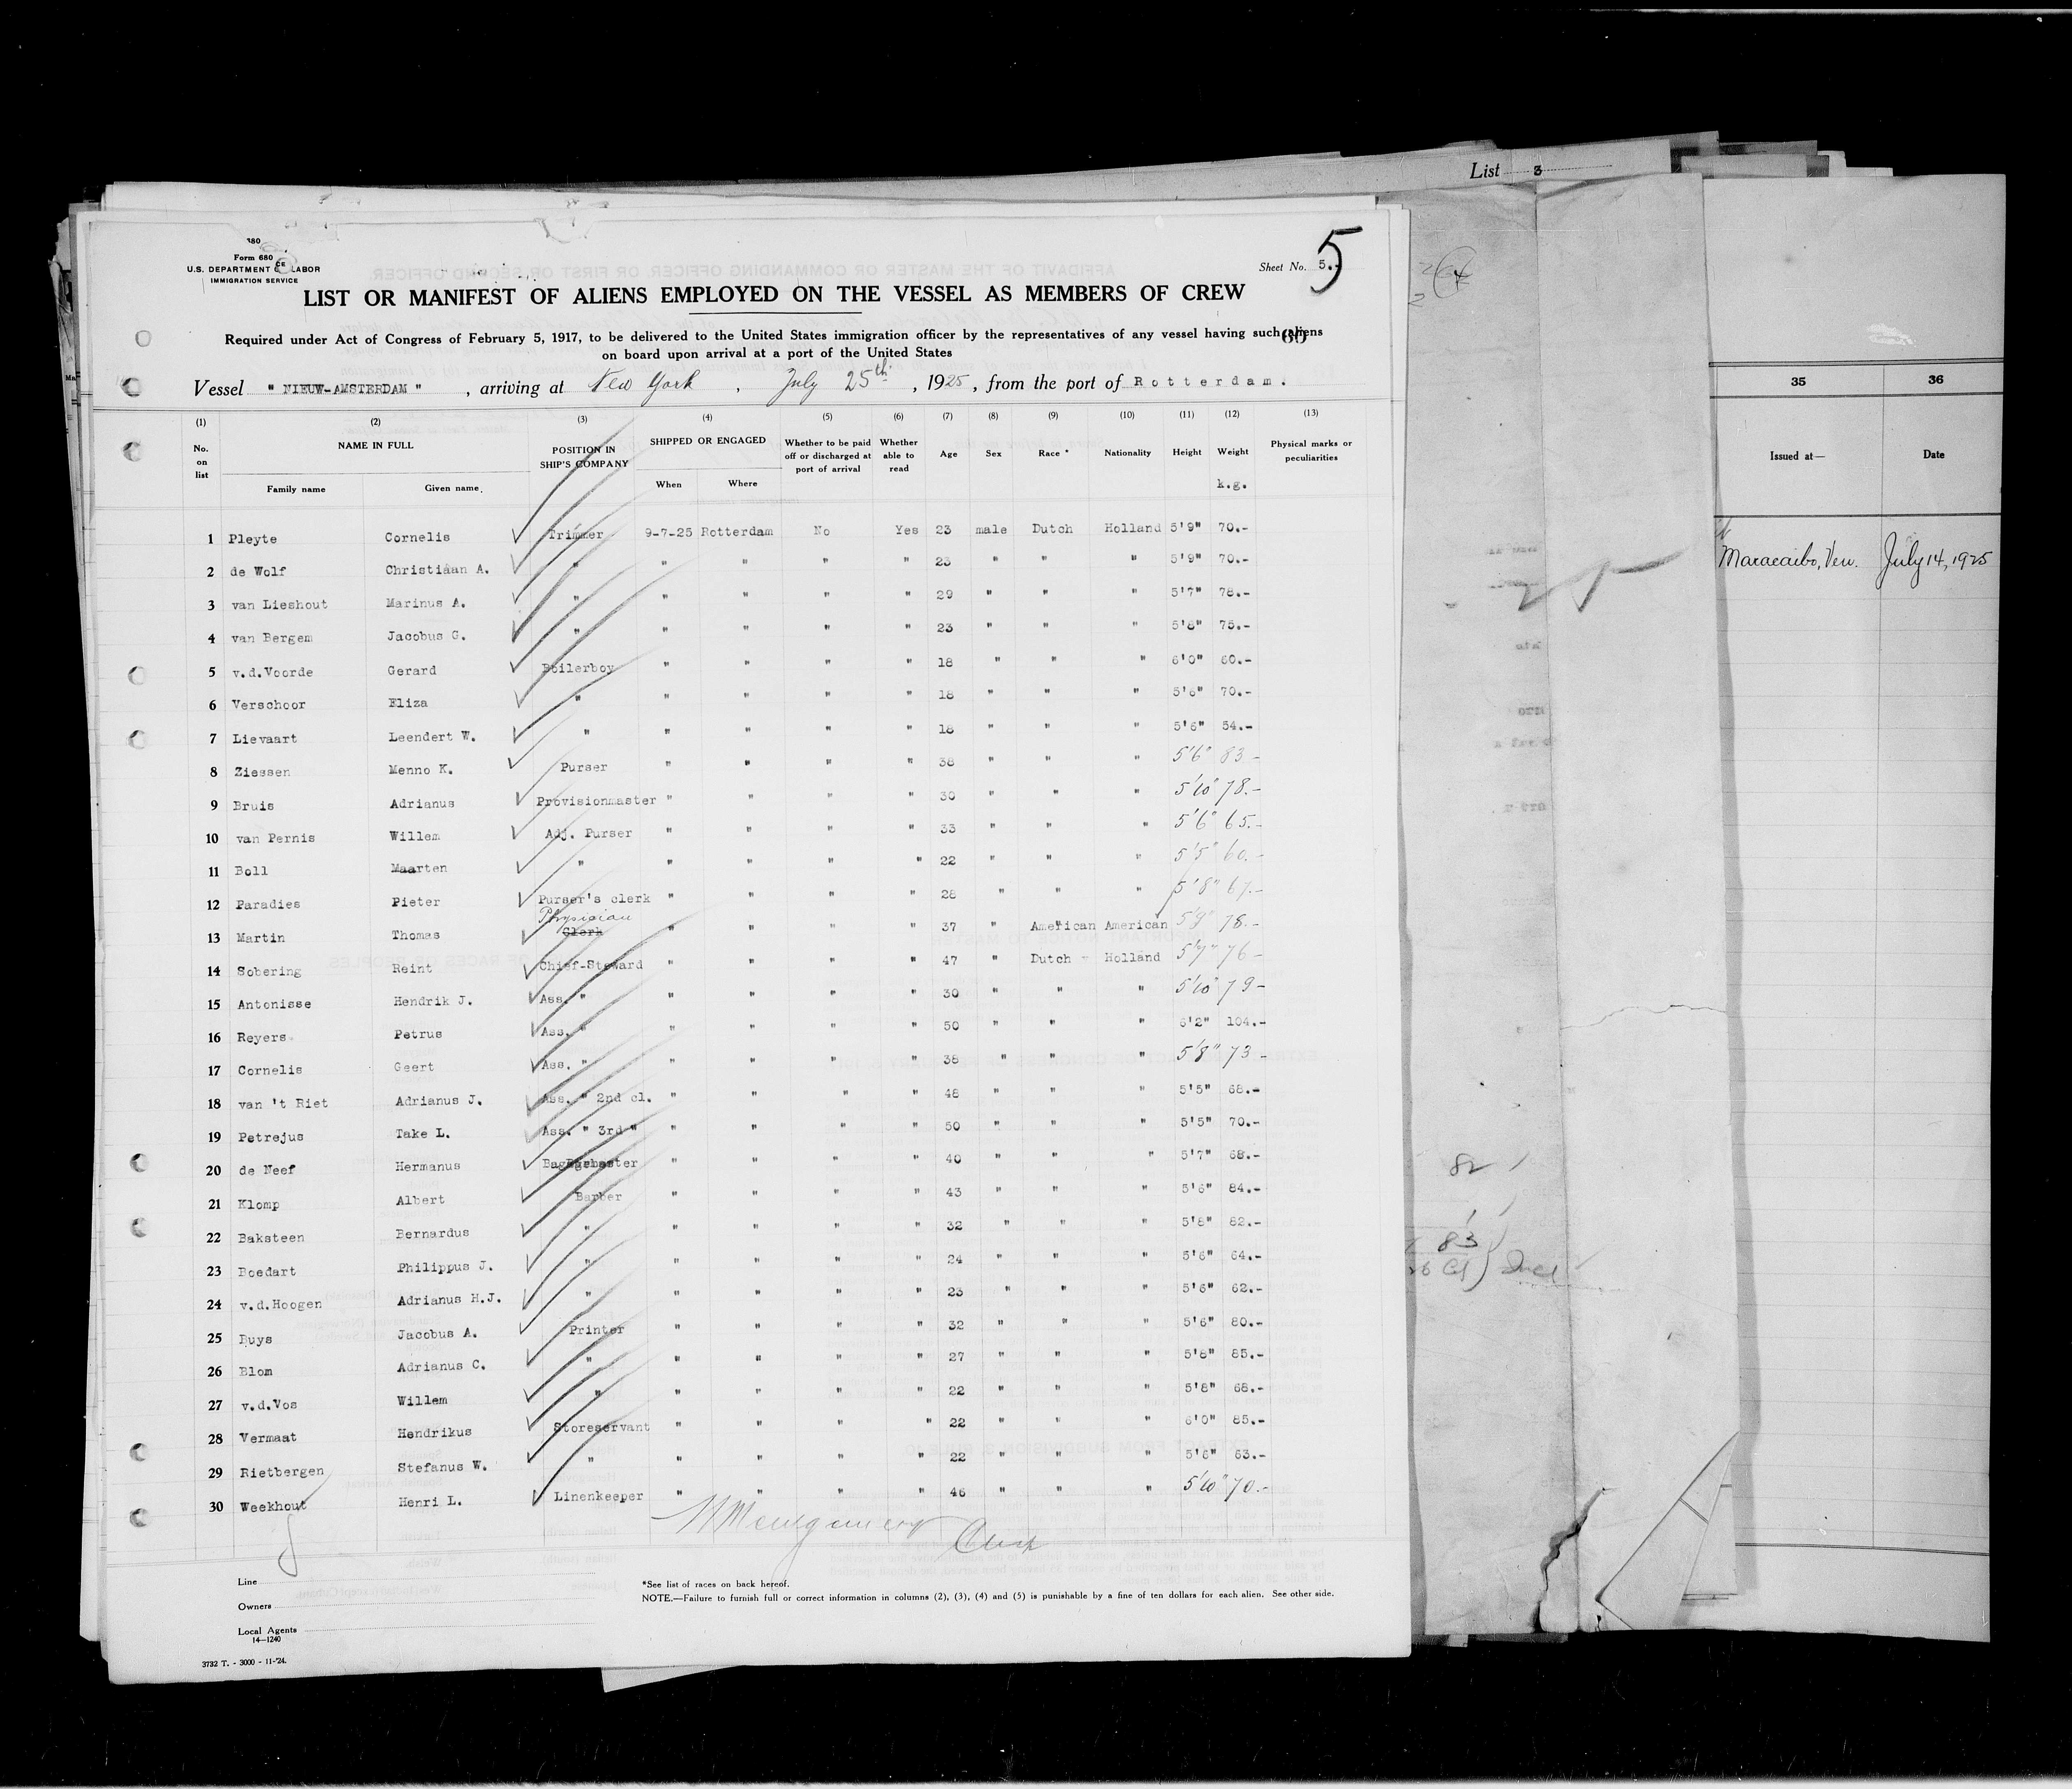 List 3
380
Form 680
U.S. DEPARTMENT OF LABOR
IMMIGRATION SERVICE
Sheet No. 5.-
5
LIST OR MANIFEST OF ALIENS EMPLOYED ON THE VESSEL AS MEMBERS OF CREW
Required under Act of Congress of February 5, 1917, to be delivered to the United States immigration officer by the representatives of any vessel having such aliens
on board upon arrival at a port of the United States
Vessel " NIEUW-AMSTERDAM " , arriving at New York , July 25th , 1925 , from the port of Rotterdam.
(1) (2) (3) (4) (5) (6) (7) (8) (9) (10) (11) (12) (13)
No. on list NAME IN FULL Family name Given name POSITION IN SHIP'S COMPANY SHIPPED OR ENGAGED When Where Whether to be paid off or discharged at port of arrival Whether able to read Age Sex Race * Nationality Height Weight k.g. Physical marks or peculiarities
1 Pleyte Cornelis Trimmer 9-7-25 Rotterdam No Yes 23 male Dutch Holland 5'9" 70.-
2 de Wolf Christiaan A. " " " " " 23 " " " 5'9" 70.-
3 van Lieshout Marinus A. " " " " " 29 " " " 5'7" 78.-
4 van Bergem Jacobus G. " " " " " 23 " " " 5'8" 75.-
5 v.d.Voorde Gerard Boilerboy " " " " 18 " " " 6'0" 60.-
6 Verschoor Eliza " " " " " 18 " " " 5'6" 70.-
7 Lievaart Leendert W. " " " " " 18 " " " 5'6" 54.-
8 Ziessen Menno K. Purser " " " " 38 " " " 5'6" 83-
9 Bruis Adrianus Provisionmaster " " " " 30 " " " 5'10" 78.-
10 van Pernis Willem Adj. Purser " " " " 33 " " " 5'6" 65.-
11 Boll Maarten " " " " " 22 " " " 5'5" 60.-
12 Paradies Pieter Purser's clerk " " " " 28 " " " 5'8" 67.-
13 Martin Thomas Physician Clerk " " " " 37 " American American 5'9" 78.-
14 Sobering Reint Chief-Steward " " " " 47 " Dutch - Holland 5'7" 76-
15 Antonisse Hendrik J. Ass. " " " " " 30 " " " 5'10" 79-
16 Reyers Petrus Ass. " " " " " 50 " " " 6'2" 104.-
17 Cornelis Geert Ass. " " " " " 38 " " " 5'8" 73-
18 van 't Riet Adrianus J. Ass. " 2nd cl. " " " " 48 " " " 5'5" 68.-
19 Petrejus Take L. Ass. " 3rd " " " " " 50 " " " 5'5" 70.-
20 de Neef Hermanus " " " " 40 " " " 5'7" 68.-
21 Klomp Albert Barber " " " " 43 " " " 5'6" 84.-
22 Baksteen Bernardus " " " " " 32 " " " 5'8" 82.-
23 Boedart Philippus J. " " " " " 24 " " " 5'6" 64.-
24 v.d.Hoogen Adrianus H.J. " " " " " 23 " " " 5'6" 62.-
25 Buys Jacobus A. Printer " " " " 32 " " " 5'6" 80.-
26 Blom Adrianus C. " " " " " 27 " " " 5'8" 85.-
27 v.d.Vos Willem " " " " " 22 " " " 5'8" 68.-
28 Vermaat Hendrikus Storeservant " " " " 22 " " " 6'0" 85.-
29 Rietbergen Stefanus W. " " " " " 22 " " " 5'6" 63.-
30 Weekhout Henri L. Linenkeeper " " " " 46 " " " 5'10" 70.-
Line
Owners
Local Agents
14—1240
*See list of races on back hereof.
NOTE.—Failure to furnish full or correct information in columns (2), (3), (4) and (5) is punishable by a fine of ten dollars for each alien. See other side.
3732 T. - 3000 - 11-'24.
35 36
Issued at— Date
Maracaibo, Ven. July 14, 1925
82
83